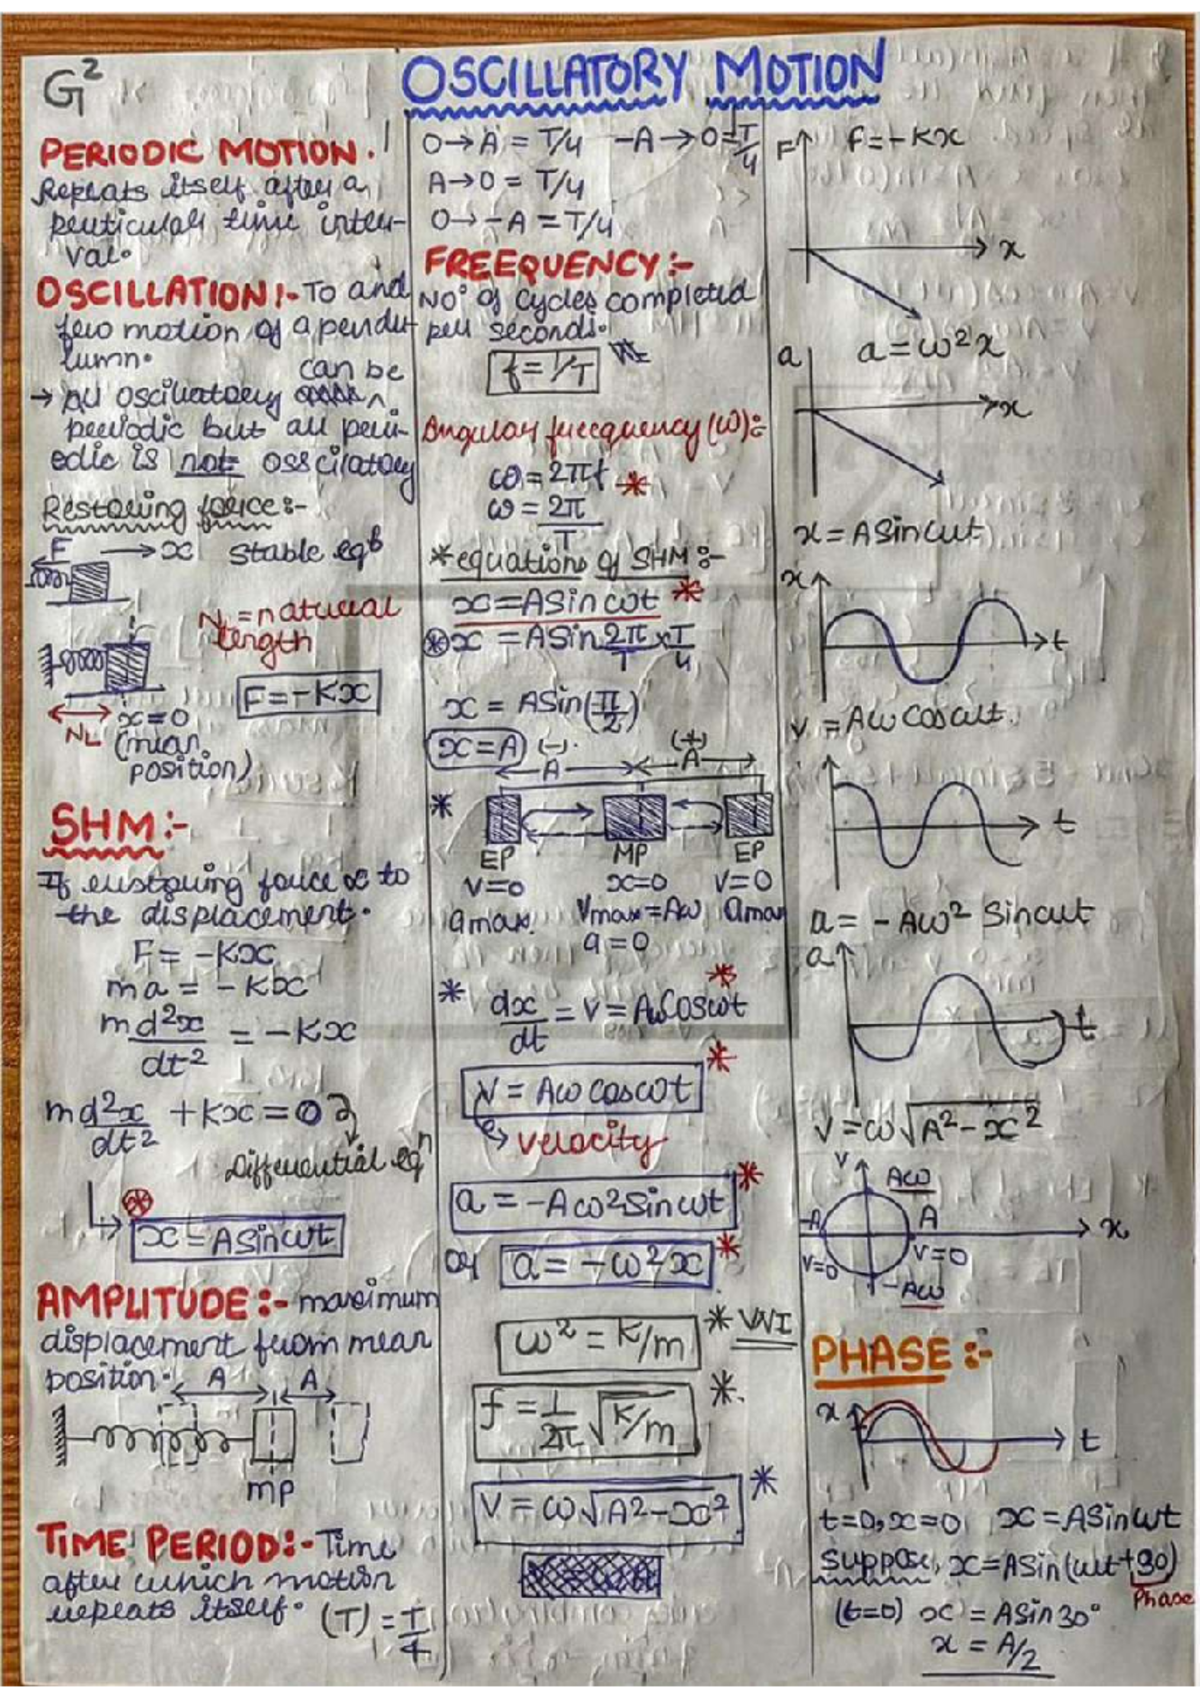 G²
OSCILLATORY MOTION
PERIODIC MOTION.
Repeats itself after a
particular time inter-
val.
OSCILLATION:- To and
fro motion of a pendu
lumn.
can be
→ All oscillatory ^
periodic but all peri-
odic is not osscilatory
Restoring force:-
F → x stable eqb
NL = natural
length
F=-Kx
NL x=0
(mean
position)
SHM:-
If restoring force ∝ to
the displacement.
F = -Kx
ma = -Kx
md²x/dt² = -Kx
md²x/dt² + Kx = 0
Differential eqn
x = A sin ωt
AMPLITUDE:- maximum
displacement from mean
position.
A A
MP
TIME PERIOD:- Time
after which motion
repeats itself. (T) = T/4
0→A = T/4 -A→0 = T/4
A→0 = T/4
0→-A = T/4
FREEQUENCY:-
No° of cycles completed
per seconds.
f = 1/T
Angular freequency (ω):-
ω = 2πf *
ω = 2π/T
* equations of SHM:-
x = A sin ωt *
* x = A sin 2π/T × T/4
x = A sin (π/2)
x = A (-) (+)
A A
*
EP MP EP
V=0 x=0 V=0
amax. Vmax = Aω amax
a = 0
* dx/dt = v = Aω cos ωt *
V = Aω cos ωt *
→ velocity
a = -Aω² sin ωt *
or a = -ω²x *
ω² = K/m * VVI
f = 1/2π √K/m *
V = ω√A²-x² *
F f = -Kx
x
a a = ω²x
x
x = A sin ωt
x
t
v = Aω cos ωt
v
t
a = -Aω² sin ωt
a
t
V = ω√A²-x²
v Aω
-A A x
V=0 V=0
-Aω
PHASE:-
x
t
t=0, x=0 x = A sin ωt
suppose, x = A sin (ωt+30)
Phase
(t=0) x = A sin 30°
x = A/2